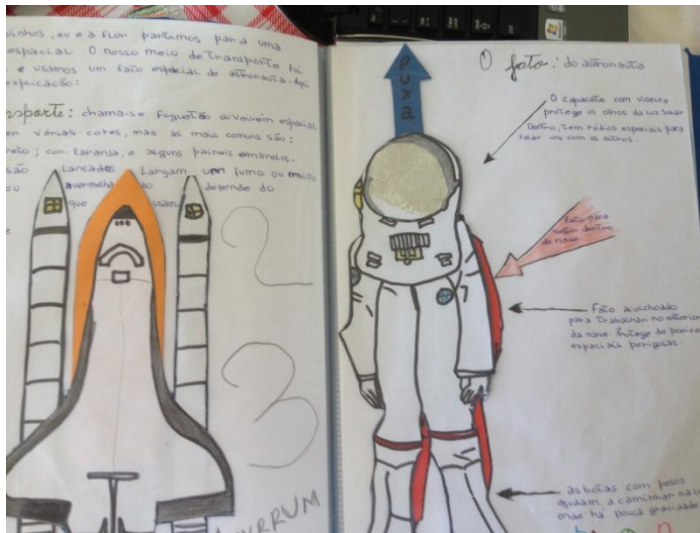 inhos, eu e a flor partimos para uma
espacial. O nosso meio de transporte foi
e usamos um fato espacial de astronauta. Aqui
explicação:
nsporte: chama-se Foguetão ou vaivém espacial
várias cores, mas as mais comuns são:
reto; cor laranja, e alguns paineis amarelos.
são Lançados Largam um fumo ou muito
ou avermelhado depende do
que usam
2
3
VRRUM
PUXA
O fato: do astronauta
O capacete com viseira
protege os olhos da Luz Solar
Dentro, tem rádios espaciais para
falar uns com os outros.
Fato para
vestir dentro
da nave.
Fato acolchoado
para trabalhar no exterior
da nave Protege de poeiras
espaciais perigosas.
as botas com pesos
ajudam a caminhar na Lu
onde há pouca gravidade